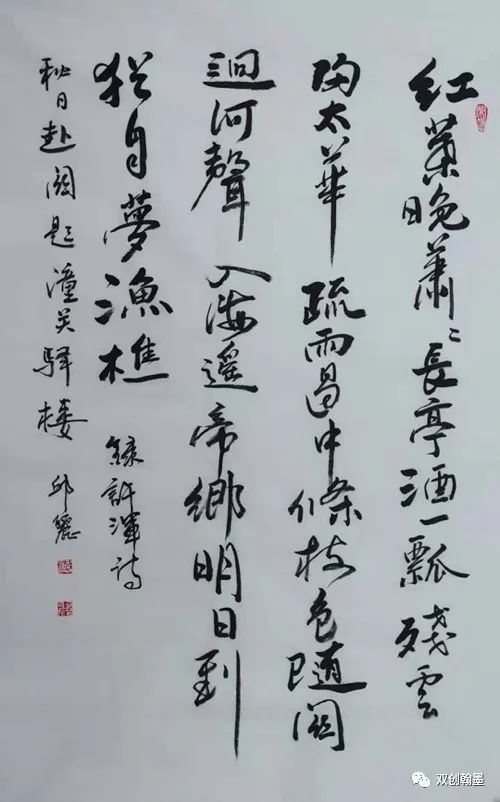 紅葉晚蕭〻長亭酒一瓢殘雲
歸太華疏雨過中條樹色隨關
迥河聲入海遥帝鄉明日到
猶自夢漁樵 録許渾詩
秋日赴闕題潼关驿楼 邱麗
双创翰墨